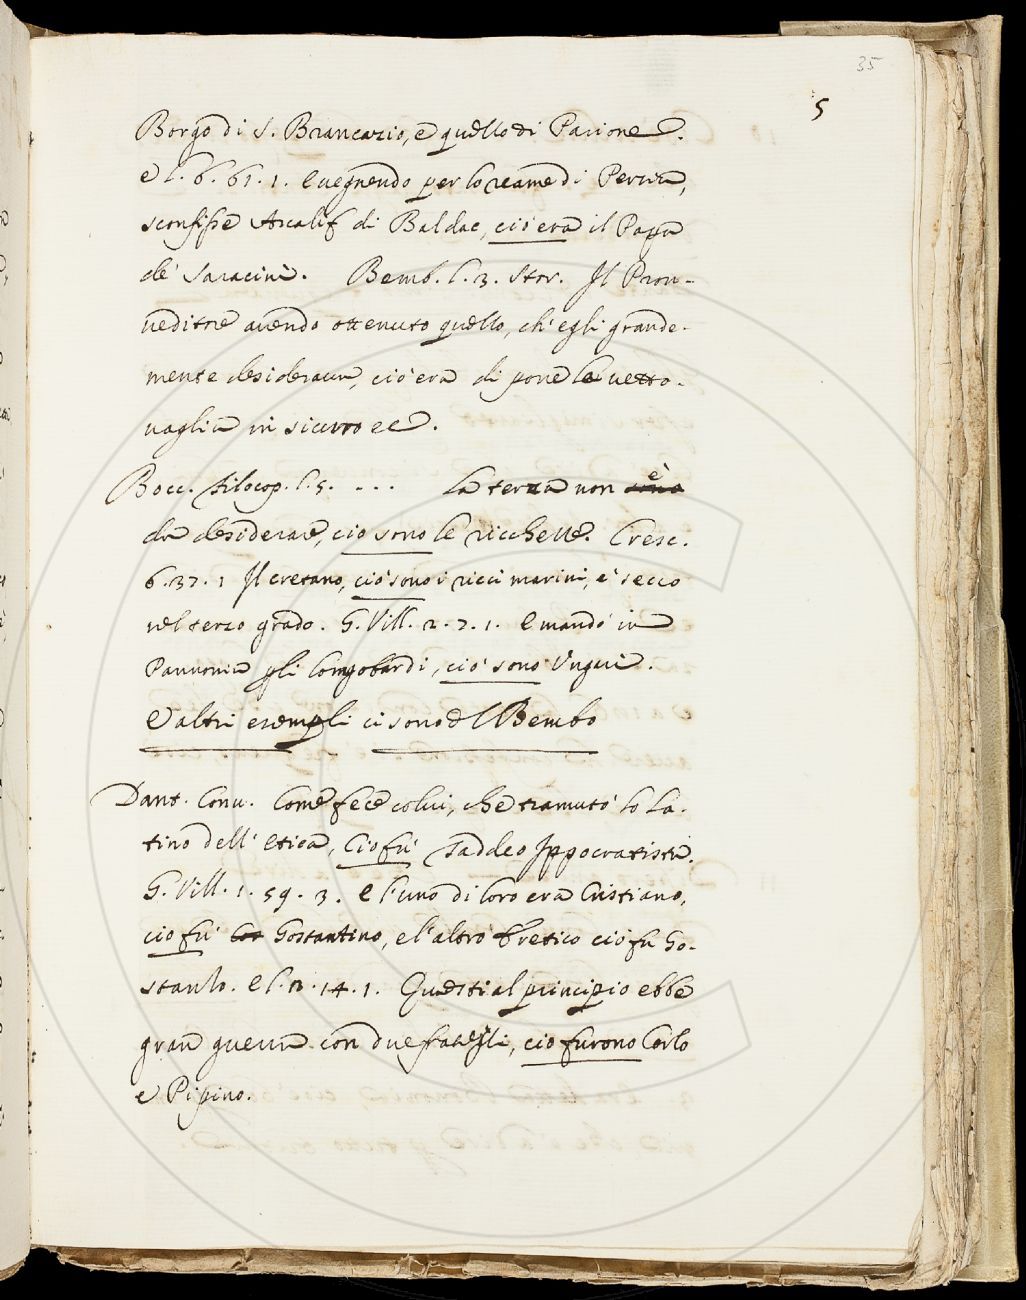 35
5
Borgo di S. Brancazio, e quello di Parione.
e l. 6. 61. 1. e vegnendo per lo reame di Persia,
sconfisse Arcalif di Baldac, ciò era il Papa
de' Saracini. Bemb. l. 3. Stor. Il Prov-
veditore avendo ottenuto quello, ch'egli grande-
mente desiderava, ciò era di porre le vetto-
vaglie in sicuro ec.
Bocc. Filocop. l. 5. ... La terza non è
da desiderare, cio sono le ricchezze. Cresc.
6. 37. 1 Il cretano, ciò sono i ricci marini, è secco
nel terzo grado. G. Vill. 2. 7. 1. e mandò in
Pannonia per gli Longobardi, ciò sono Ungari.
E altri esempli ci sono del Bembo
Dant. Conv. Come fece colui, che tramutò lo La-
tino dell' Etica, Ciò fu Taddeo Ippocratista.
G. Vill. 1. 59. 3. e l'uno di loro era Cristiano,
ciò fu Gostantino, e l'altro Eretico ciò fu Go-
stanzo. e l. 2. 14. 1. Questi al principio ebbe
gran guerra con due frategli, ciò furono Carlo
e Pipino.